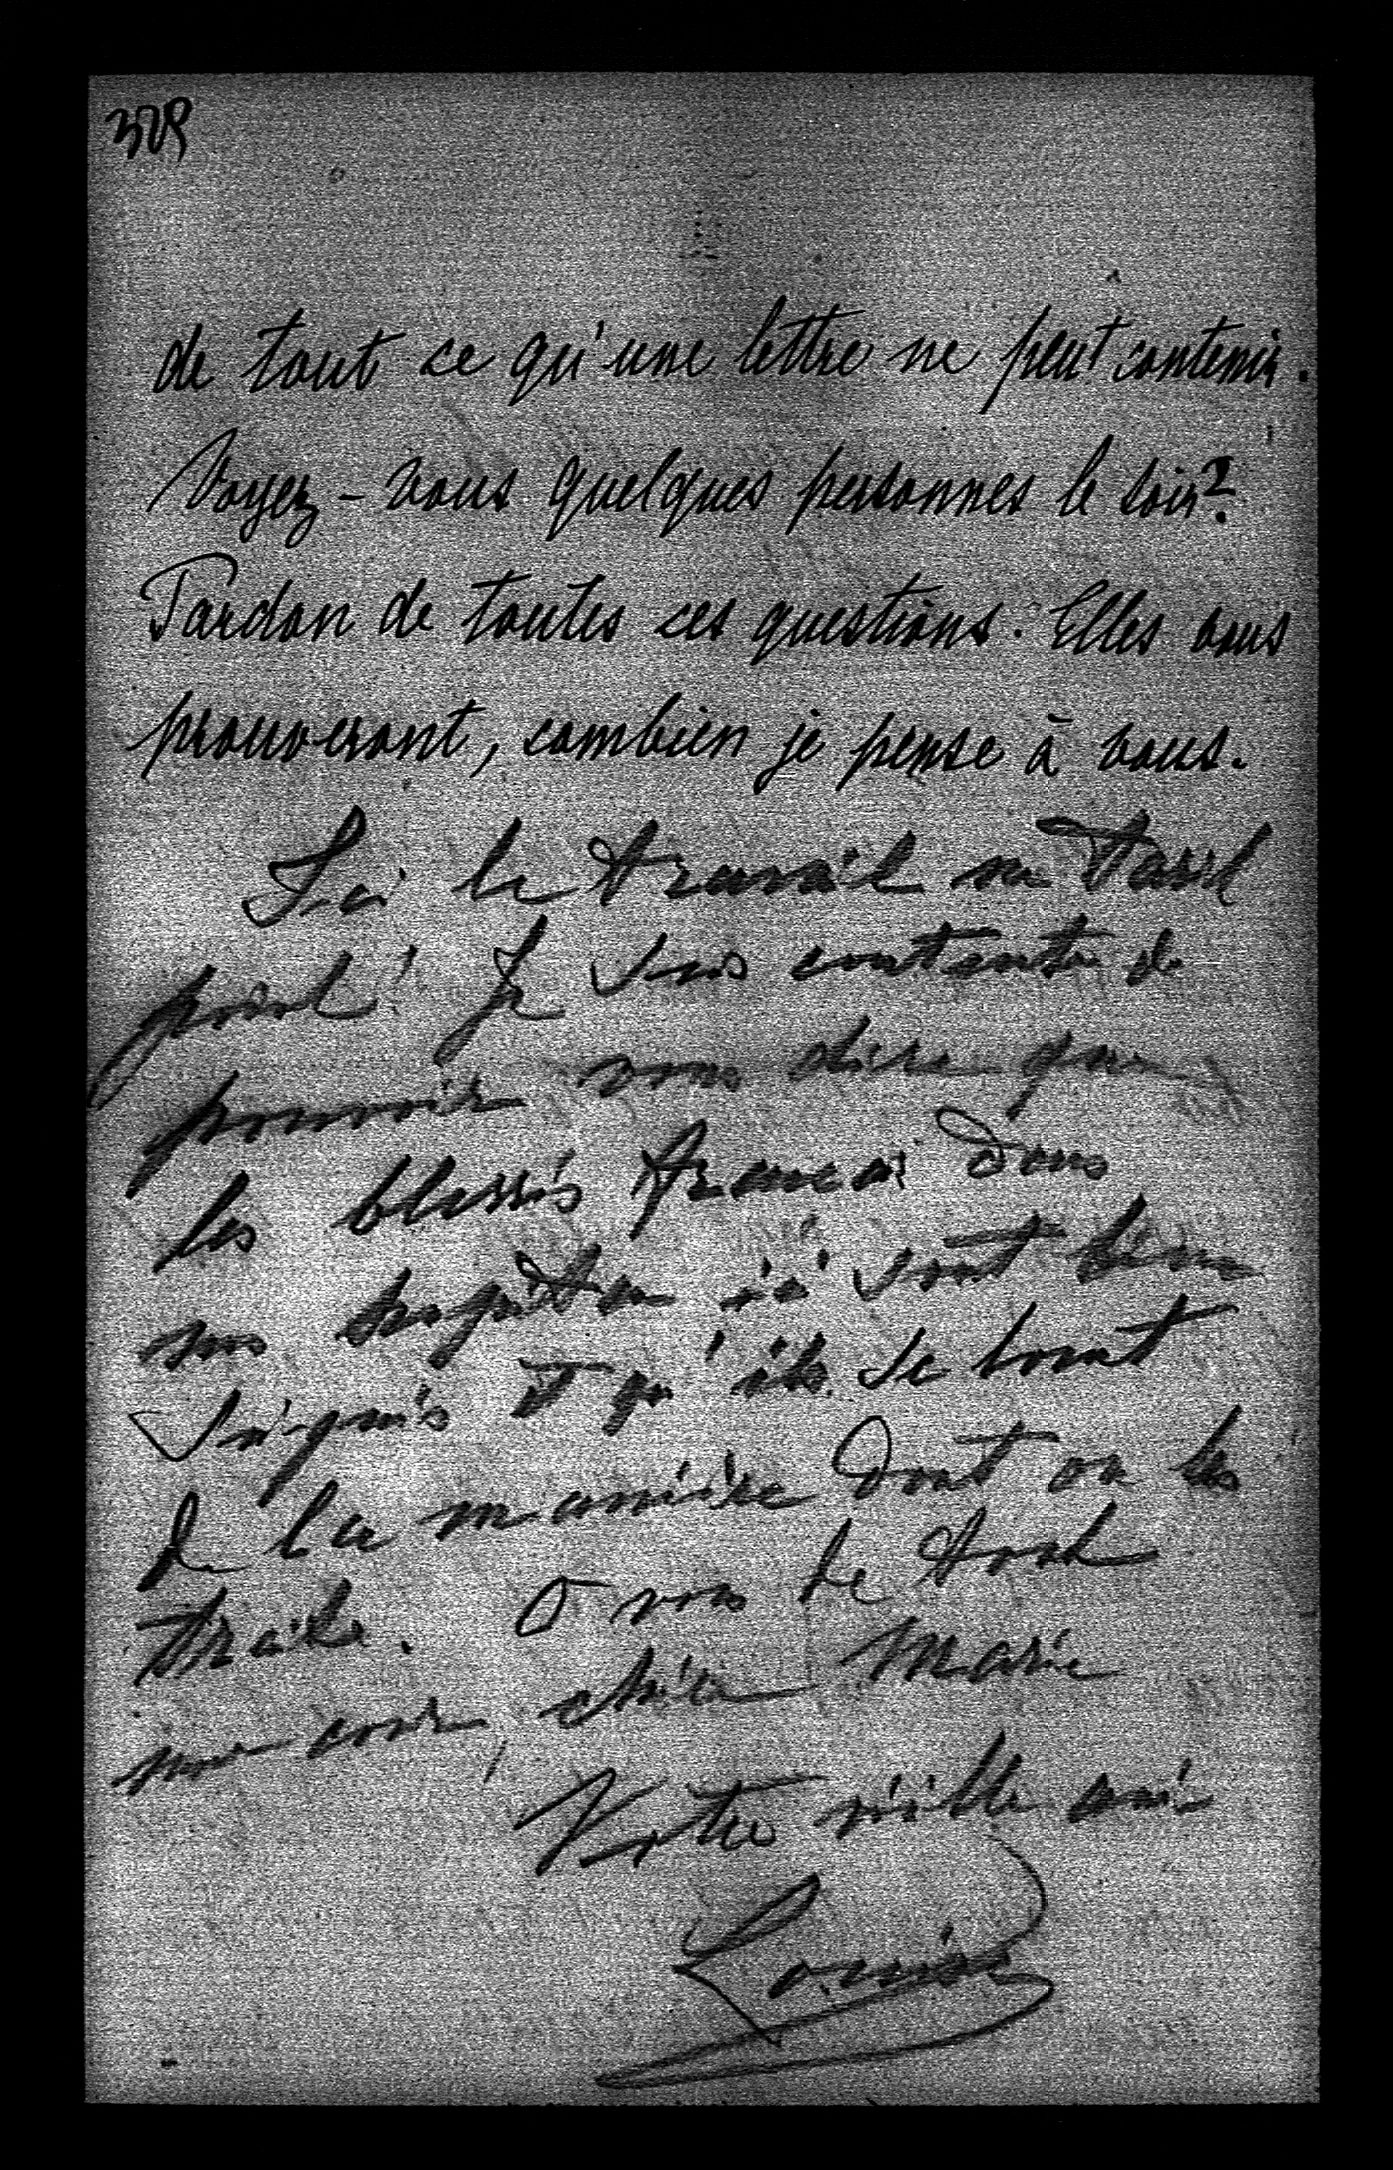 328
de tout ce qu'une lettre ne peut contenir.
Voyez-vous quelques personnes le soir?
Pardon de toutes ces questions. Elles vous
prouveront, combien je pense à vous.
Ici le travail ne tarit
point! Je suis contente de
pouvoir vous dire que
les blessés français dans
nos hopitaux ici sont bien
soignés et qu'ils se louent
de la manière dont on les
traite. A vous de tout
mon cœur, chère Marie
Votre vieille amie
Louise